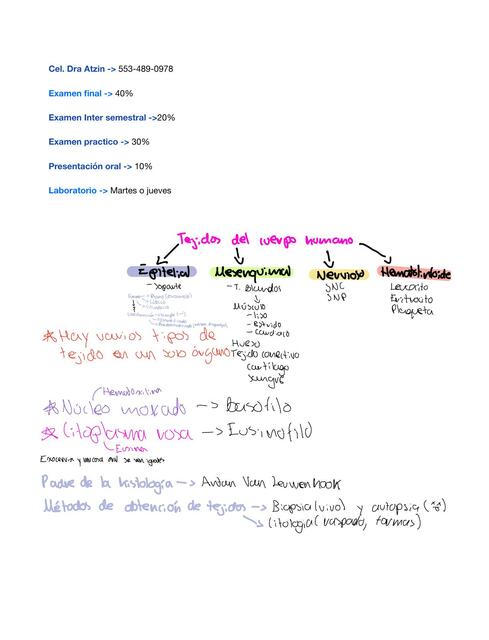 Cel. Dra Atzin -> 553-489-0978
Examen final -> 40%
Examen Inter semestral ->20%
Examen practico -> 30%
Presentación oral -> 10%
Laboratorio -> Martes o jueves
Tejidos del cuerpo humano
Epitelial
-Soporte
Mesenquimal
-T. Blandos
Músculo
-liso
-Estriado
-Cardiaco
Hueso
Tejido conectivo
Cartílago
Sangre
Nervioso
SNC
SNP
Hematolinfoide
Leucocito
Eritrocito
Plaqueta
*Hay varios tipos de
tejido en un solo órgano
Hematoxilina
*Núcleo morado -> Basofilo
*Citoplasma rosa -> Eusinofilo
Eusina
Padre de la histología -> Antan Van Leuwenhook
Métodos de obtención de tejidos -> Biopsia(vivo) y autopsia
Citologia(raspado,